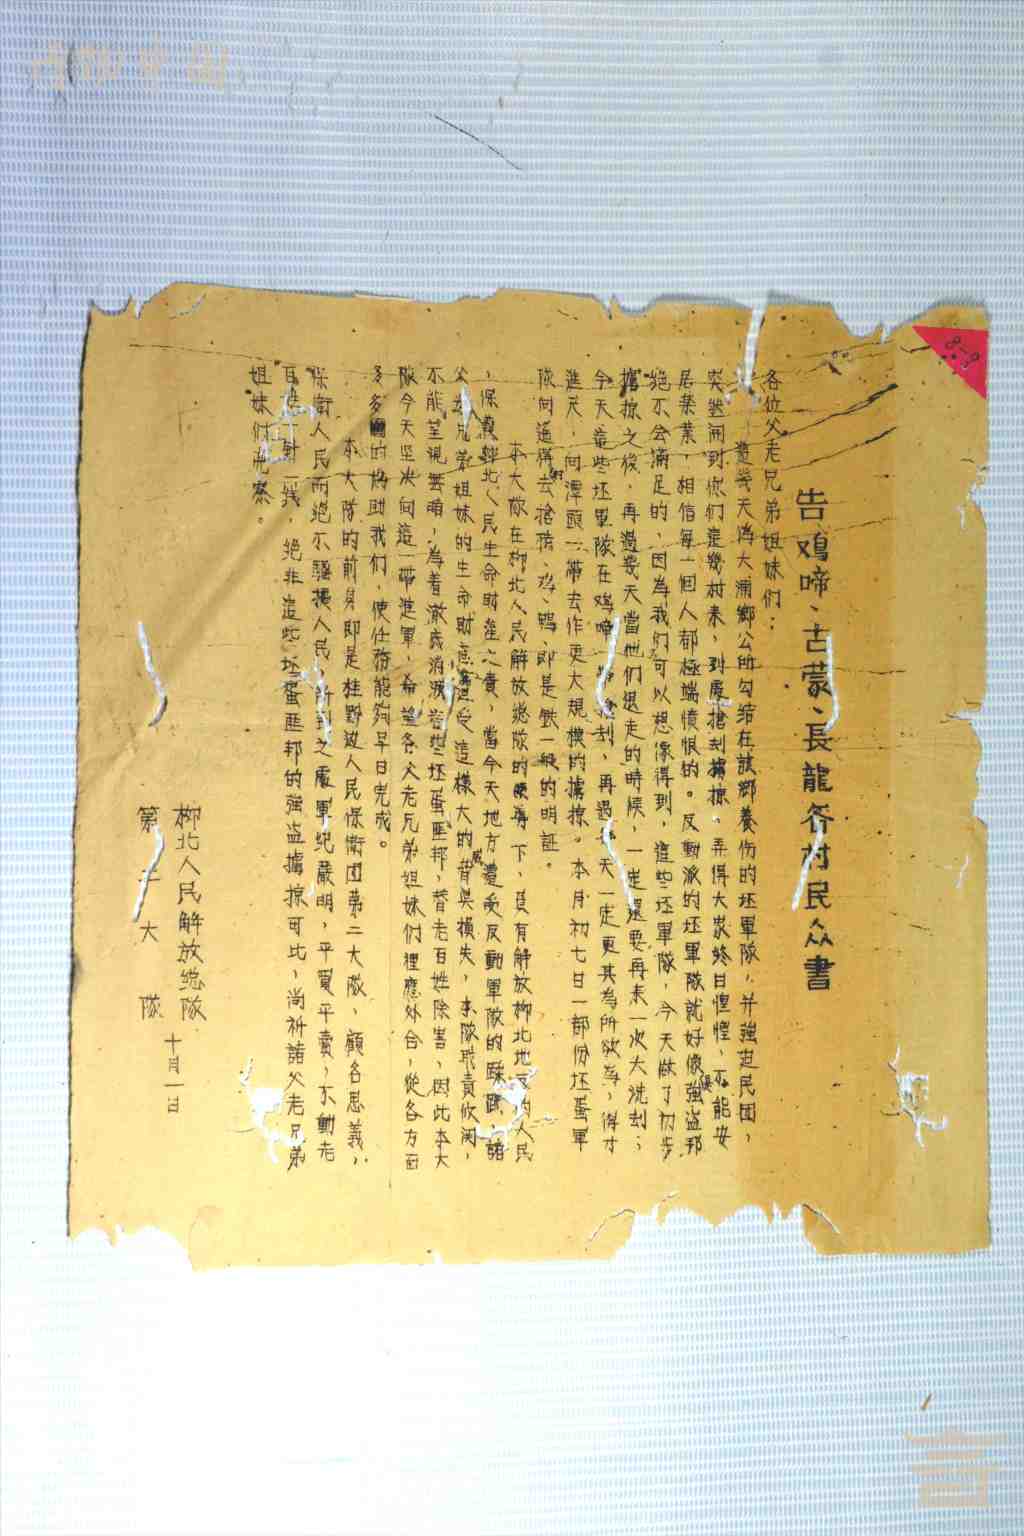 告鸡啼、古蒙、長龍各村民众書
各位父老兄弟姐妹们：
這幾天偽大浦鄉公所勾結在該鄉養伤的坯軍隊，并強迫民団，
突然開到你们這幾村来，到處搶刦擄掠。弄得大家終日惶惶，不能安
居業業，相信每一個人都極端憤恨的。反動派的坯軍隊就好像強盗邦
絕不会滿足的，因為我们可以想像得到，這些坯軍隊，今天做了初步
擄掠之後，再過幾天當他们退走的時候，一定還要再来一次大洗刦；
今天這些坯軍隊在鸡啼搶刦，再過天一定更其為所欲為，得寸
進尺，向潭頭一帶去作更大規模的擄掠。本月初七日一部份坯蛋軍
隊向遥得村去搶猪、鸡、鸭，即是鉄一般的明証。
本大隊在柳北人民解放總隊的領導下，負有解放柳北地區的人民
，保護柳北人民生命財產之責，當今天地方遭受反動軍隊的蹂躪，諸
父老兄弟姐妹的生命財產遭受這樣大的威脅與損失，本隊职責攸関，
不能坐視無睹，為着澈底消滅這些坯蛋匪邦，替老百姓除害，因此本大
隊今天坚决向這一帶進軍，希望各父老兄弟姐妹们裡應外合，從各方面
多多的協助我们，使任務能夠早日完成。
本大隊的前身即是桂黔边人民保衛団第二大隊，顧名思義，
保衛人民而絕不騷擾人民，所到之處軍纪嚴明，平買平賣，不動老
百姓一針一线，絕非這些坯蛋匪邦的強盗擄掠可比，尚祈諸父老兄弟
姐妹们洞察。
柳北人民解放總隊
第三大隊
十月一日
8-9